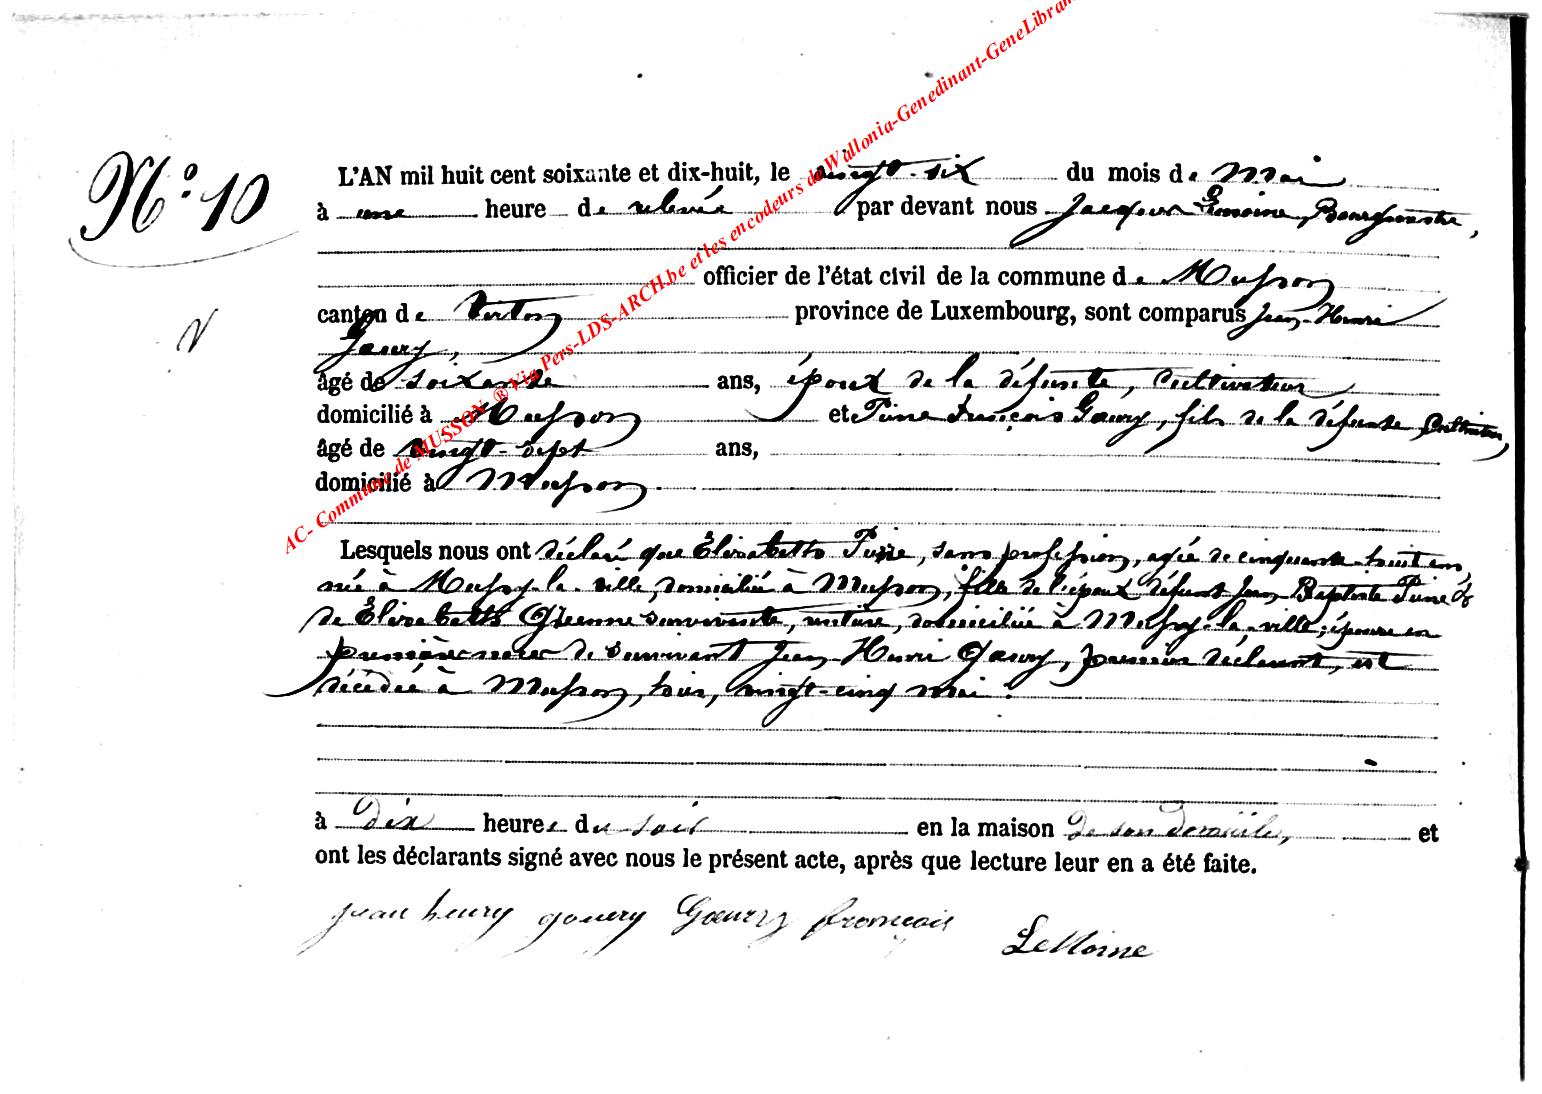 N° 10
L'AN mil huit cent soixante et dix-huit, le vingt-six du mois de Mai
à une heure de relevée par devant nous Jacques Lemoine, Bourgmestre,
officier de l'état civil de la commune de Musson
canton de Virton province de Luxembourg, sont comparus Jean-Henri
Goury,
âgé de soixante ans, époux de la défunte, cultivateur
domicilié à Musson et Pierre François Goury, fils de la défunte, cultivateur,
âgé de vingt-sept ans,
domicilié à Musson.
Lesquels nous ont déclaré que Elisabeth Pierre, sans profession, agée de cinquante-huit ans,
née à Mussy-la-ville, domiciliée à Musson, fille de l'époux défunt Jean Baptiste Pierre &
de Elisabeth survivante, domiciliée à Mussy-la-ville; épouse en
premières noces de survivant Jean-Henri Goury, premier déclarant, est
décédée à Musson, hier, vingt-cinq mai.
à dix heures du soir en la maison de son domicile, et
ont les déclarants signé avec nous le présent acte, après que lecture leur en a été faite.
jean henry goury Goury francois
LeMoine
AC- Commune de MUSSON ® Via Pers-LDS-ARCH.be et les encodeurs de Wallonia-Genedinant-GeneLibran